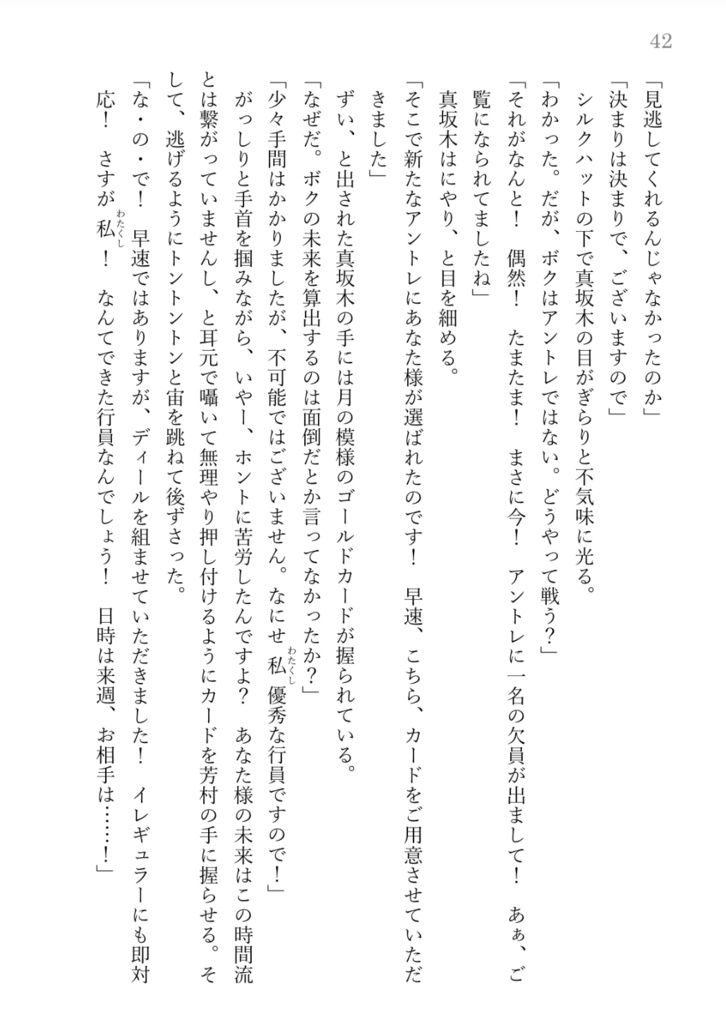 42
「見逃してくれるんじゃなかったのか」
「決まりは決まりで、ございますので」
シルクハットの下で真坂木の目がぎらりと不気味に光る。
「わかった。だが、ボクはアントレではない。どうやって戦う？」
「それがなんと！　偶然！　たまたま！　まさに今！　アントレに一名の欠員が出まして！　あぁ、ご
覧になられてましたね」
真坂木はにやり、と目を細める。
「そこで新たなアントレにあなた様が選ばれたのです！　早速、こちら、カードをご用意させていただ
きました」
ずい、と出された真坂木の手には月の模様のゴールドカードが握られている。
「なぜだ。ボクの未来を算出するのは面倒だとか言ってなかったか？」
「少々手間はかかりましたが、不可能ではございません。なにせ私わたくし優秀な行員ですので！」
がっしりと手首を掴みながら、いやー、ホントに苦労したんですよ？　あなた様の未来はこの時間流
とは繋がっていませんし、と耳元で囁いて無理やり押し付けるようにカードを芳村の手に握らせる。そ
して、逃げるようにトントントンと宙を跳ねて後ずさった。
「な・の・で！　早速ではありますが、ディールを組ませていただきました！　イレギュラーにも即対
応！　さすが私わたくし！　なんてできた行員なんでしょう！　日時は来週、お相手は……！」